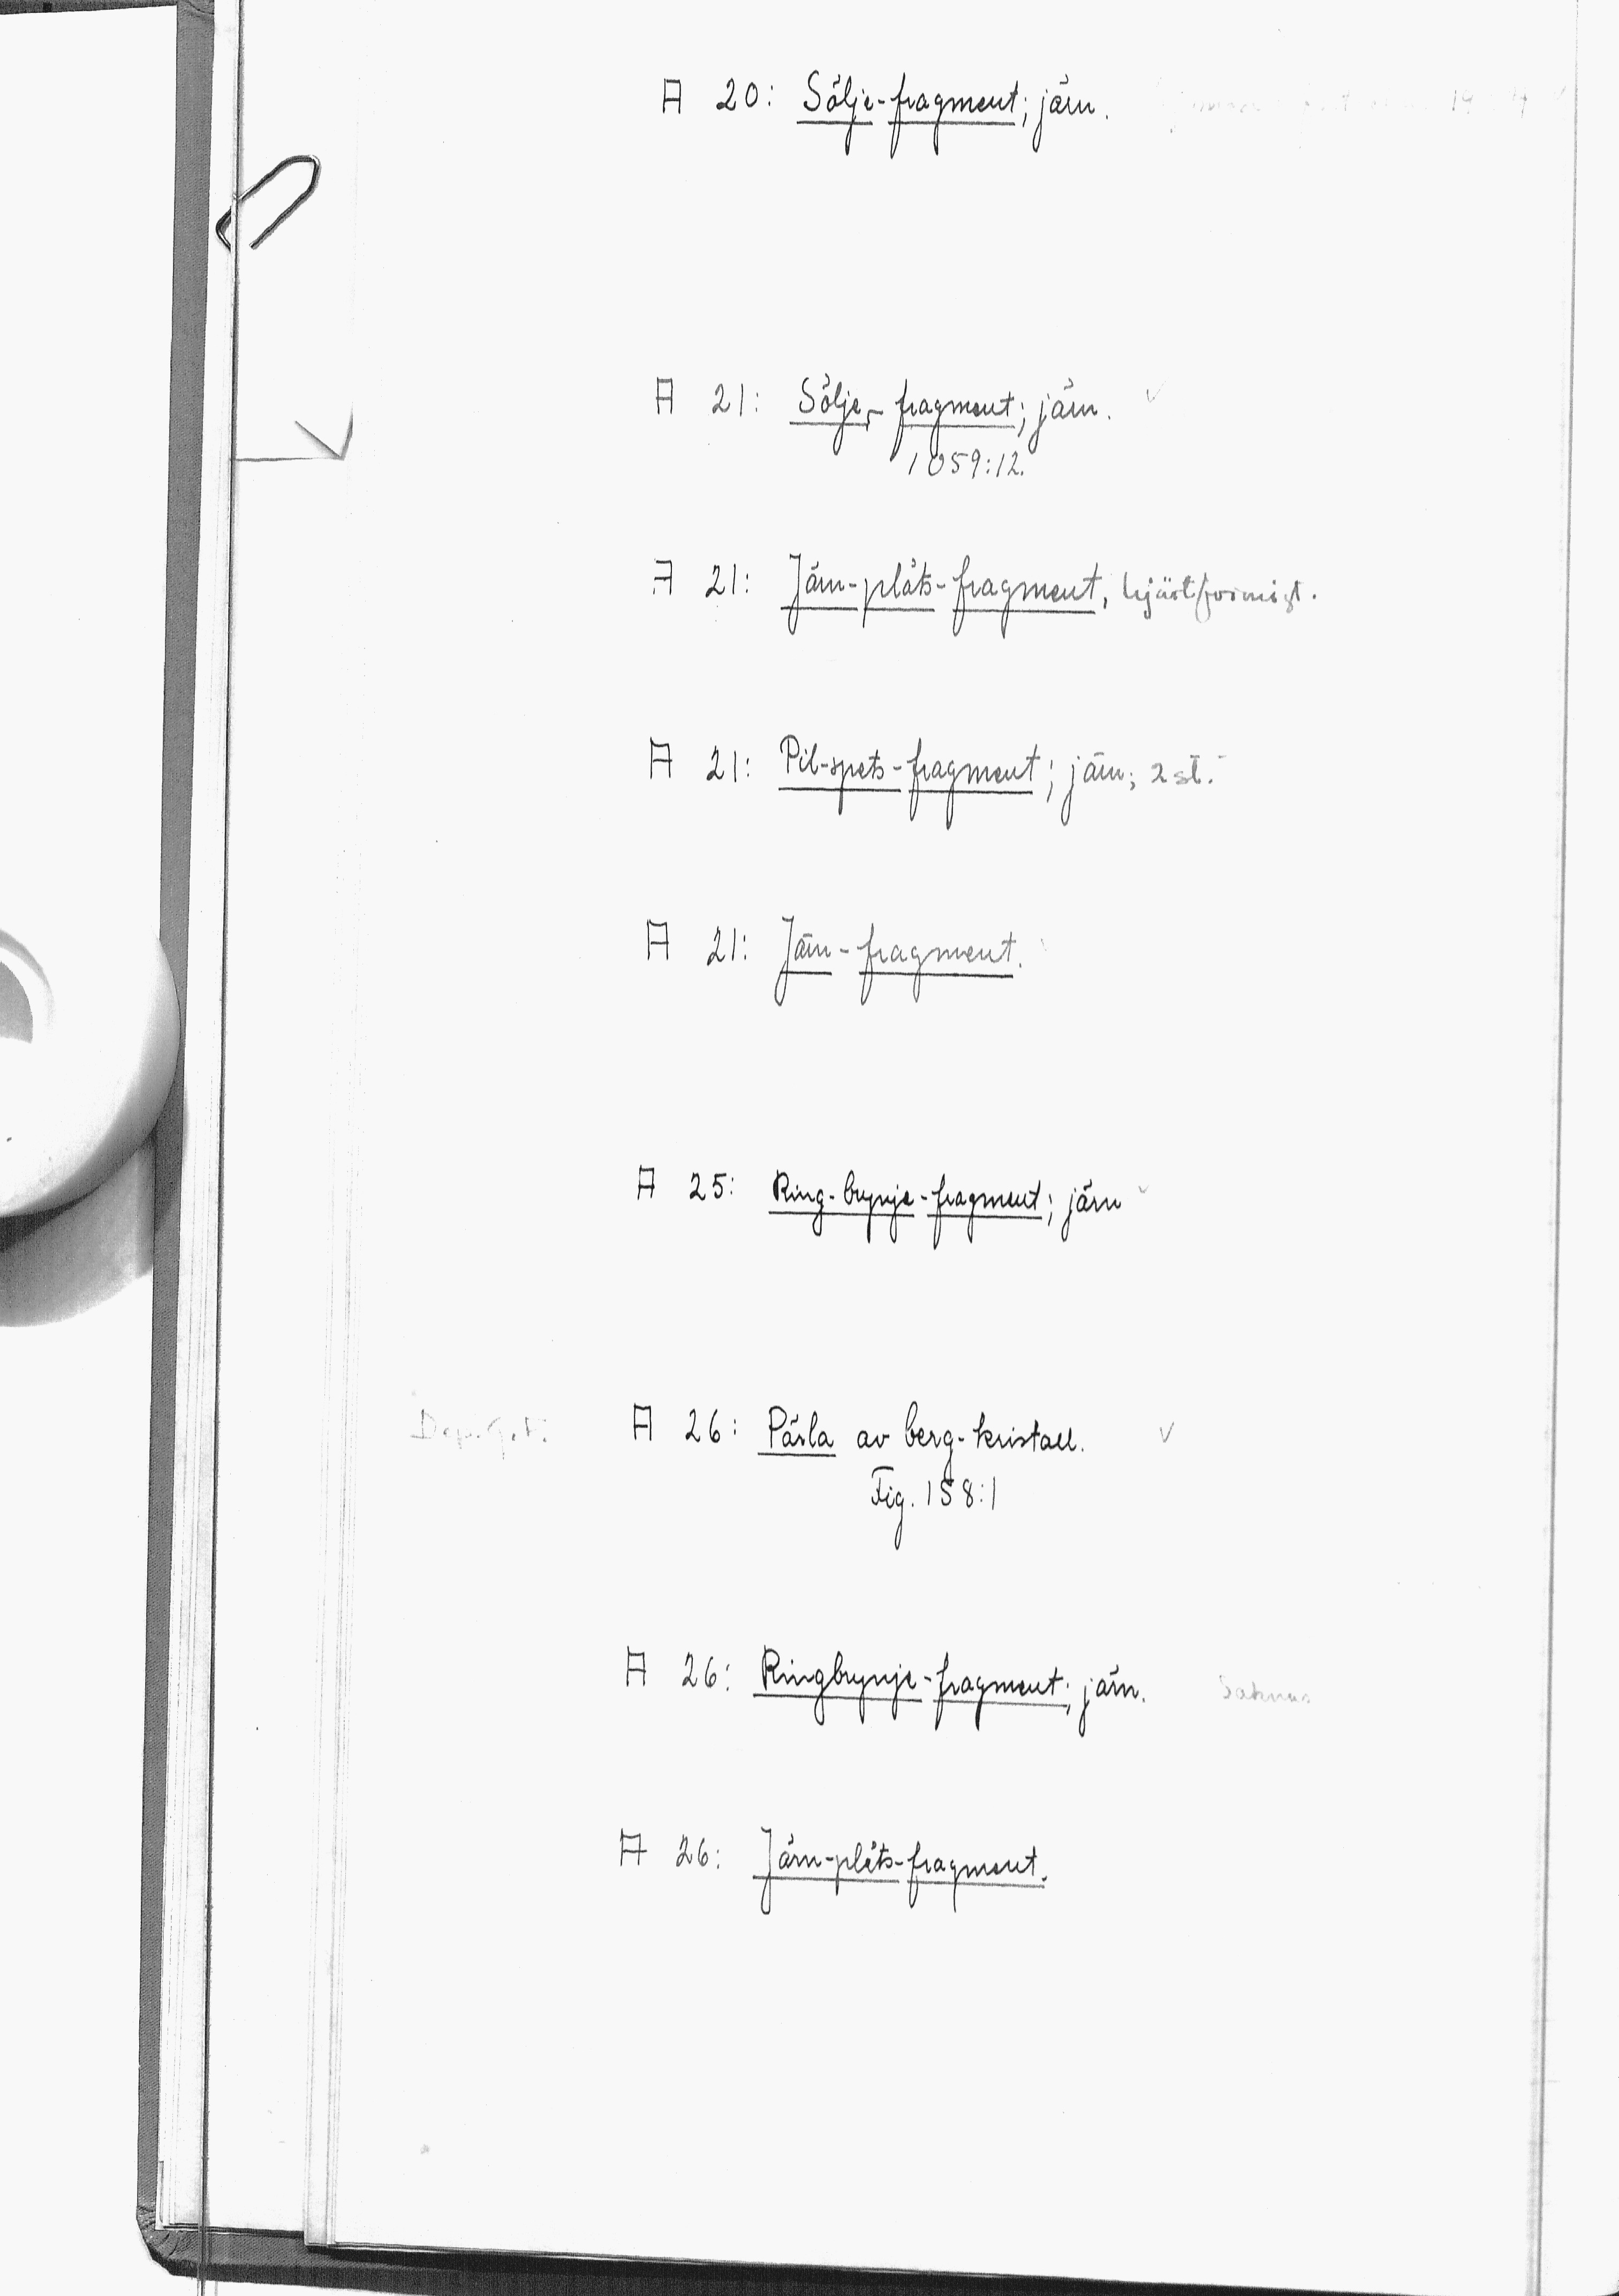 A 20: Sölje-fragment; järn.
A 21: Sölje-fragment; järn. v
1059:12.
A 21: Järn-plåts-fragment, hjärtformigt.
A 21: Pil-spets-fragment; järn; 2 st.
A 21: Järn-fragment.
A 25: Ring-brynje-fragment; järn v
A 26: Pärla av berg-kristall. v
Fig. 158:1
A 26: Ringbrynje-fragment; järn. Saknas
A 26: Järn-plåts-fragment.